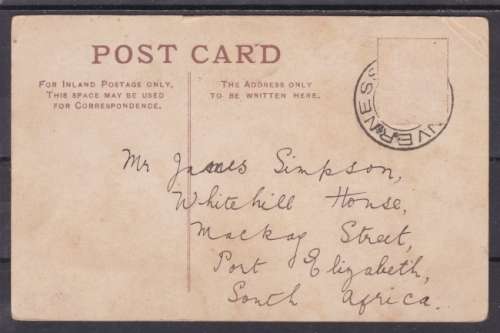 POST CARD
FOR INLAND POSTAGE ONLY,
THIS SPACE MAY BE USED
FOR CORRESPONDENCE.
THE ADDRESS ONLY
TO BE WRITTEN HERE.
INVERNESS
Mr James Simpson,
Whitehill House,
Mackay Street,
Port Elizabeth,
South Africa.